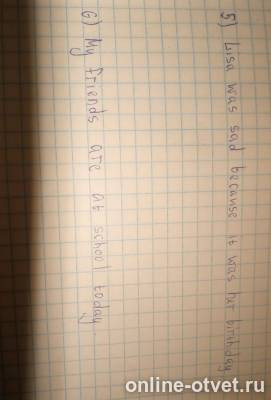 5) Lisa was sad because it was her birthday
6) My friends are at school today.
online-otvet.ru